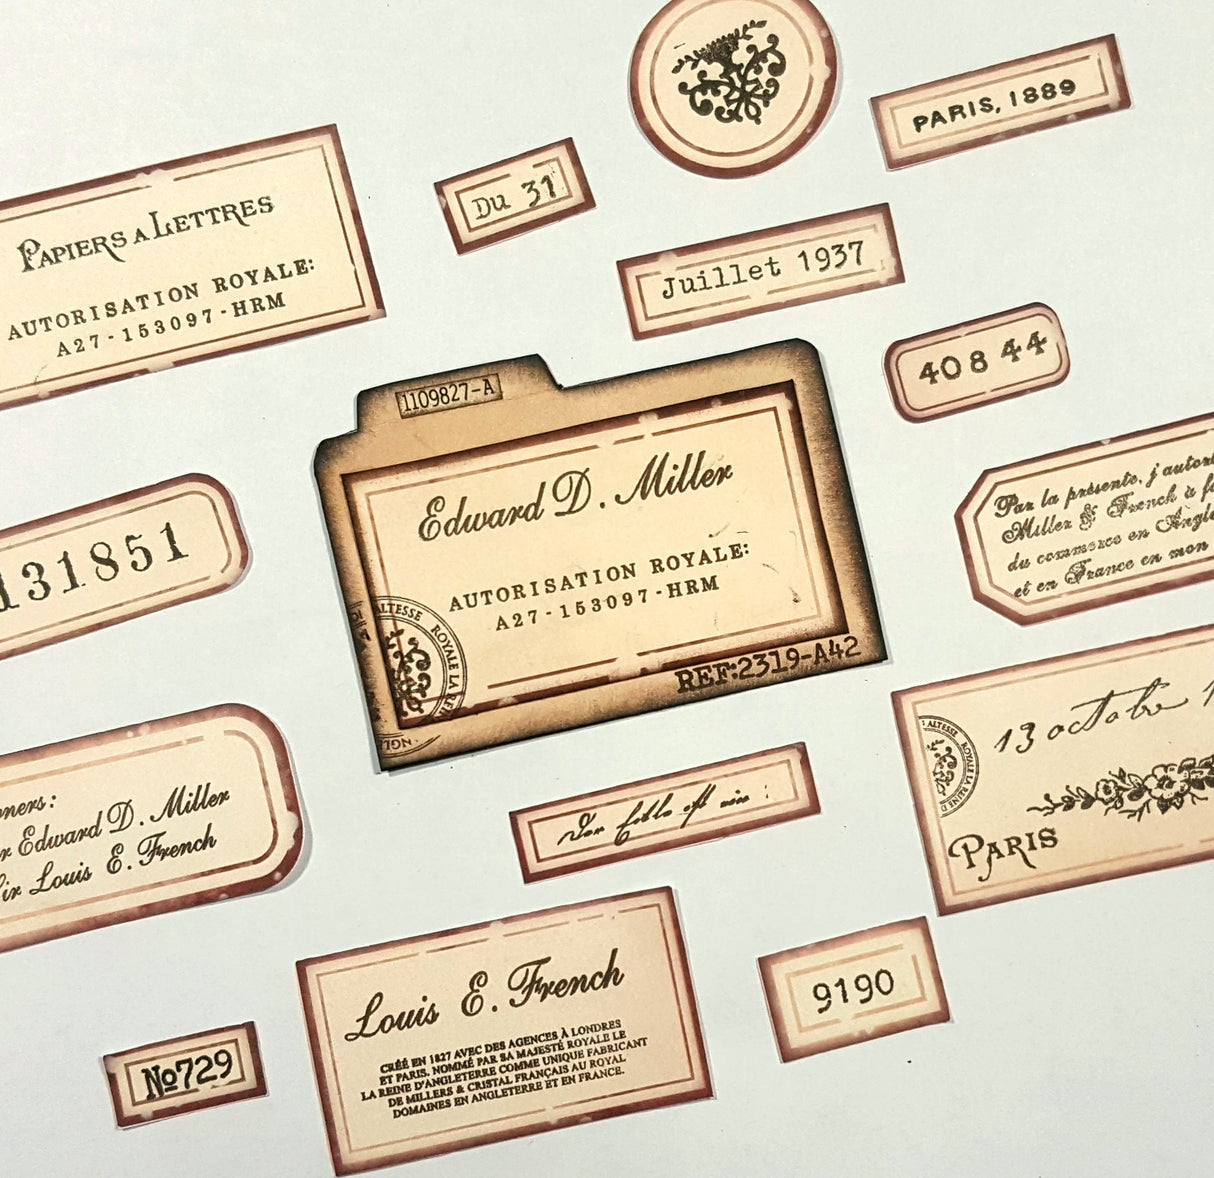 PARIS, 1889
Du 31
PAPIERS A LETTRES
AUTORISATION ROYALE:
A27-153097-HRM
Juillet 1937
408 44
1109827-A
Edward D. Miller
AUTORISATION ROYALE:
A27-153097-HRM
ALTESSE ROYALE LA REI
REF:2319-A42
Par la présente, j'autori
Miller & French à fa
du commerce en Angle
et en France en mon
131851
13 octobre 1
ALTESSE ROYALE LA REINE D
PARIS
oners:
r Edward D. Miller
Sir Louis E. French
Louis E. French
CRÉÉ EN 1827 AVEC DES AGENCES À LONDRES
ET PARIS. NOMMÉ PAR SA MAJESTÉ ROYALE LE
LA REINE D'ANGLETERRE COMME UNIQUE FABRICANT
DE MILLERS & CRISTAL FRANÇAIS AU ROYAL
DOMAINES EN ANGLETERRE ET EN FRANCE.
9190
№729